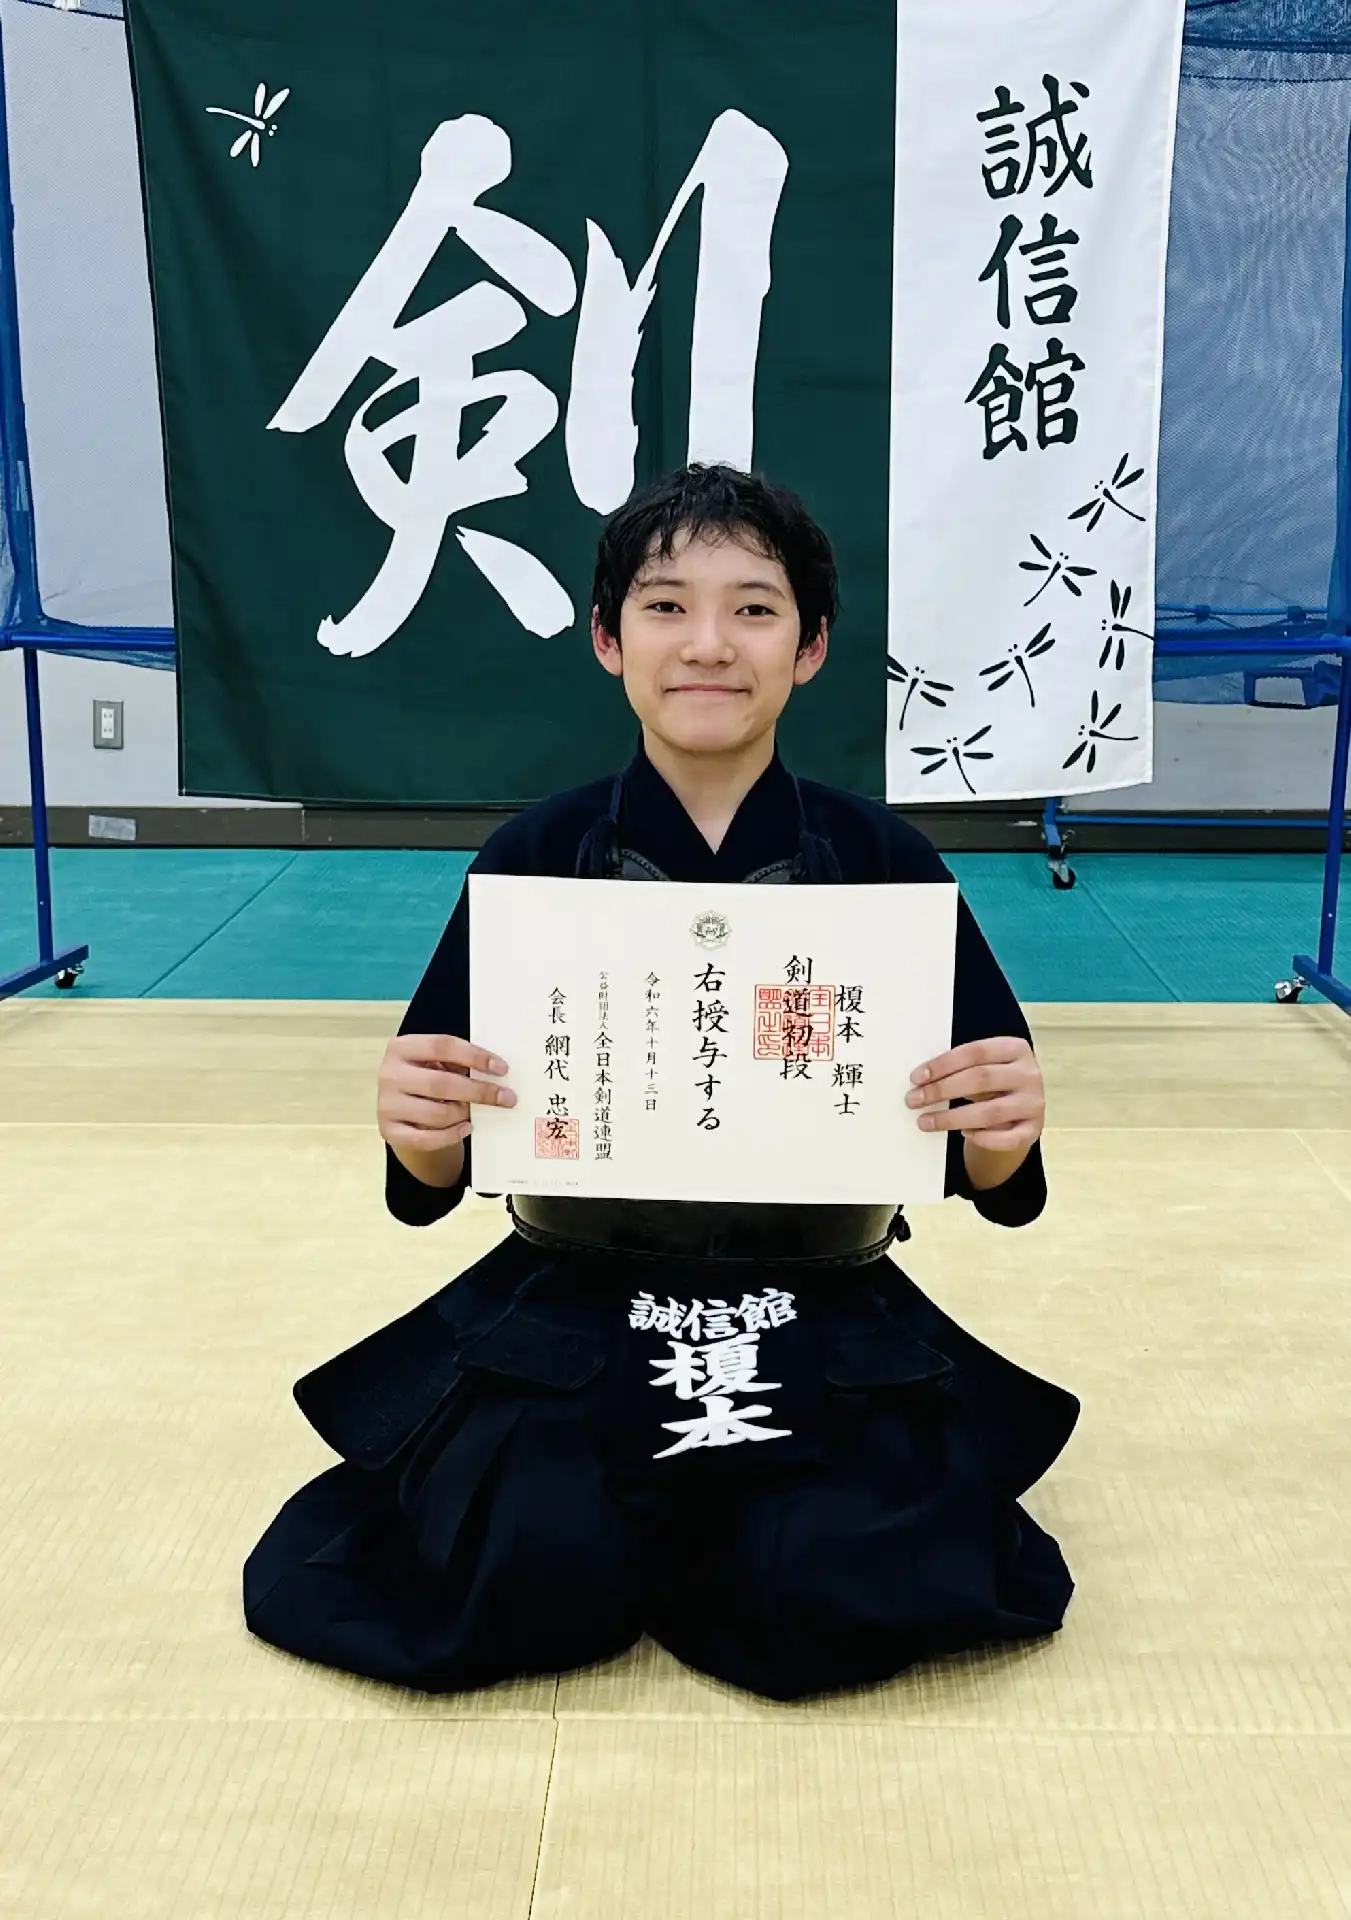 剣
誠信館
榎本 輝士
剣道初段
右授与する
令和六年十月十三日
公益財団法人全日本剣道連盟
会長 網代 忠宏
誠信館
榎本